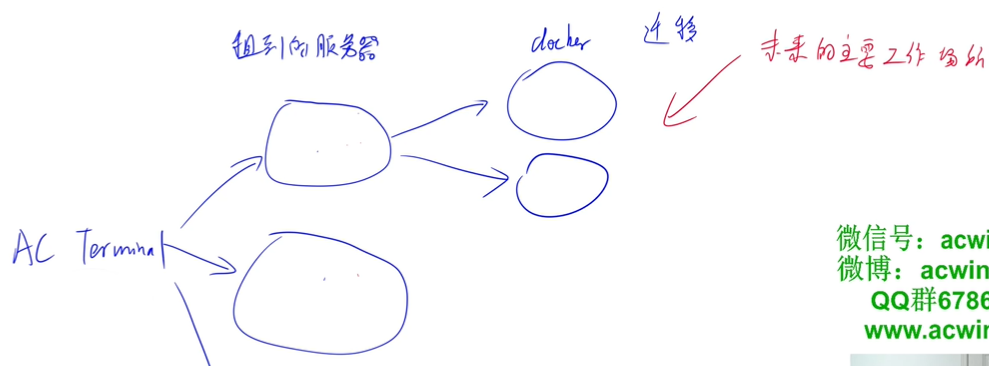 租到的服务器
docker
迁移
未来的主要工作场所
AC Terminal
微信号：acwi
微博：acwin
QQ群6786
www.acwin